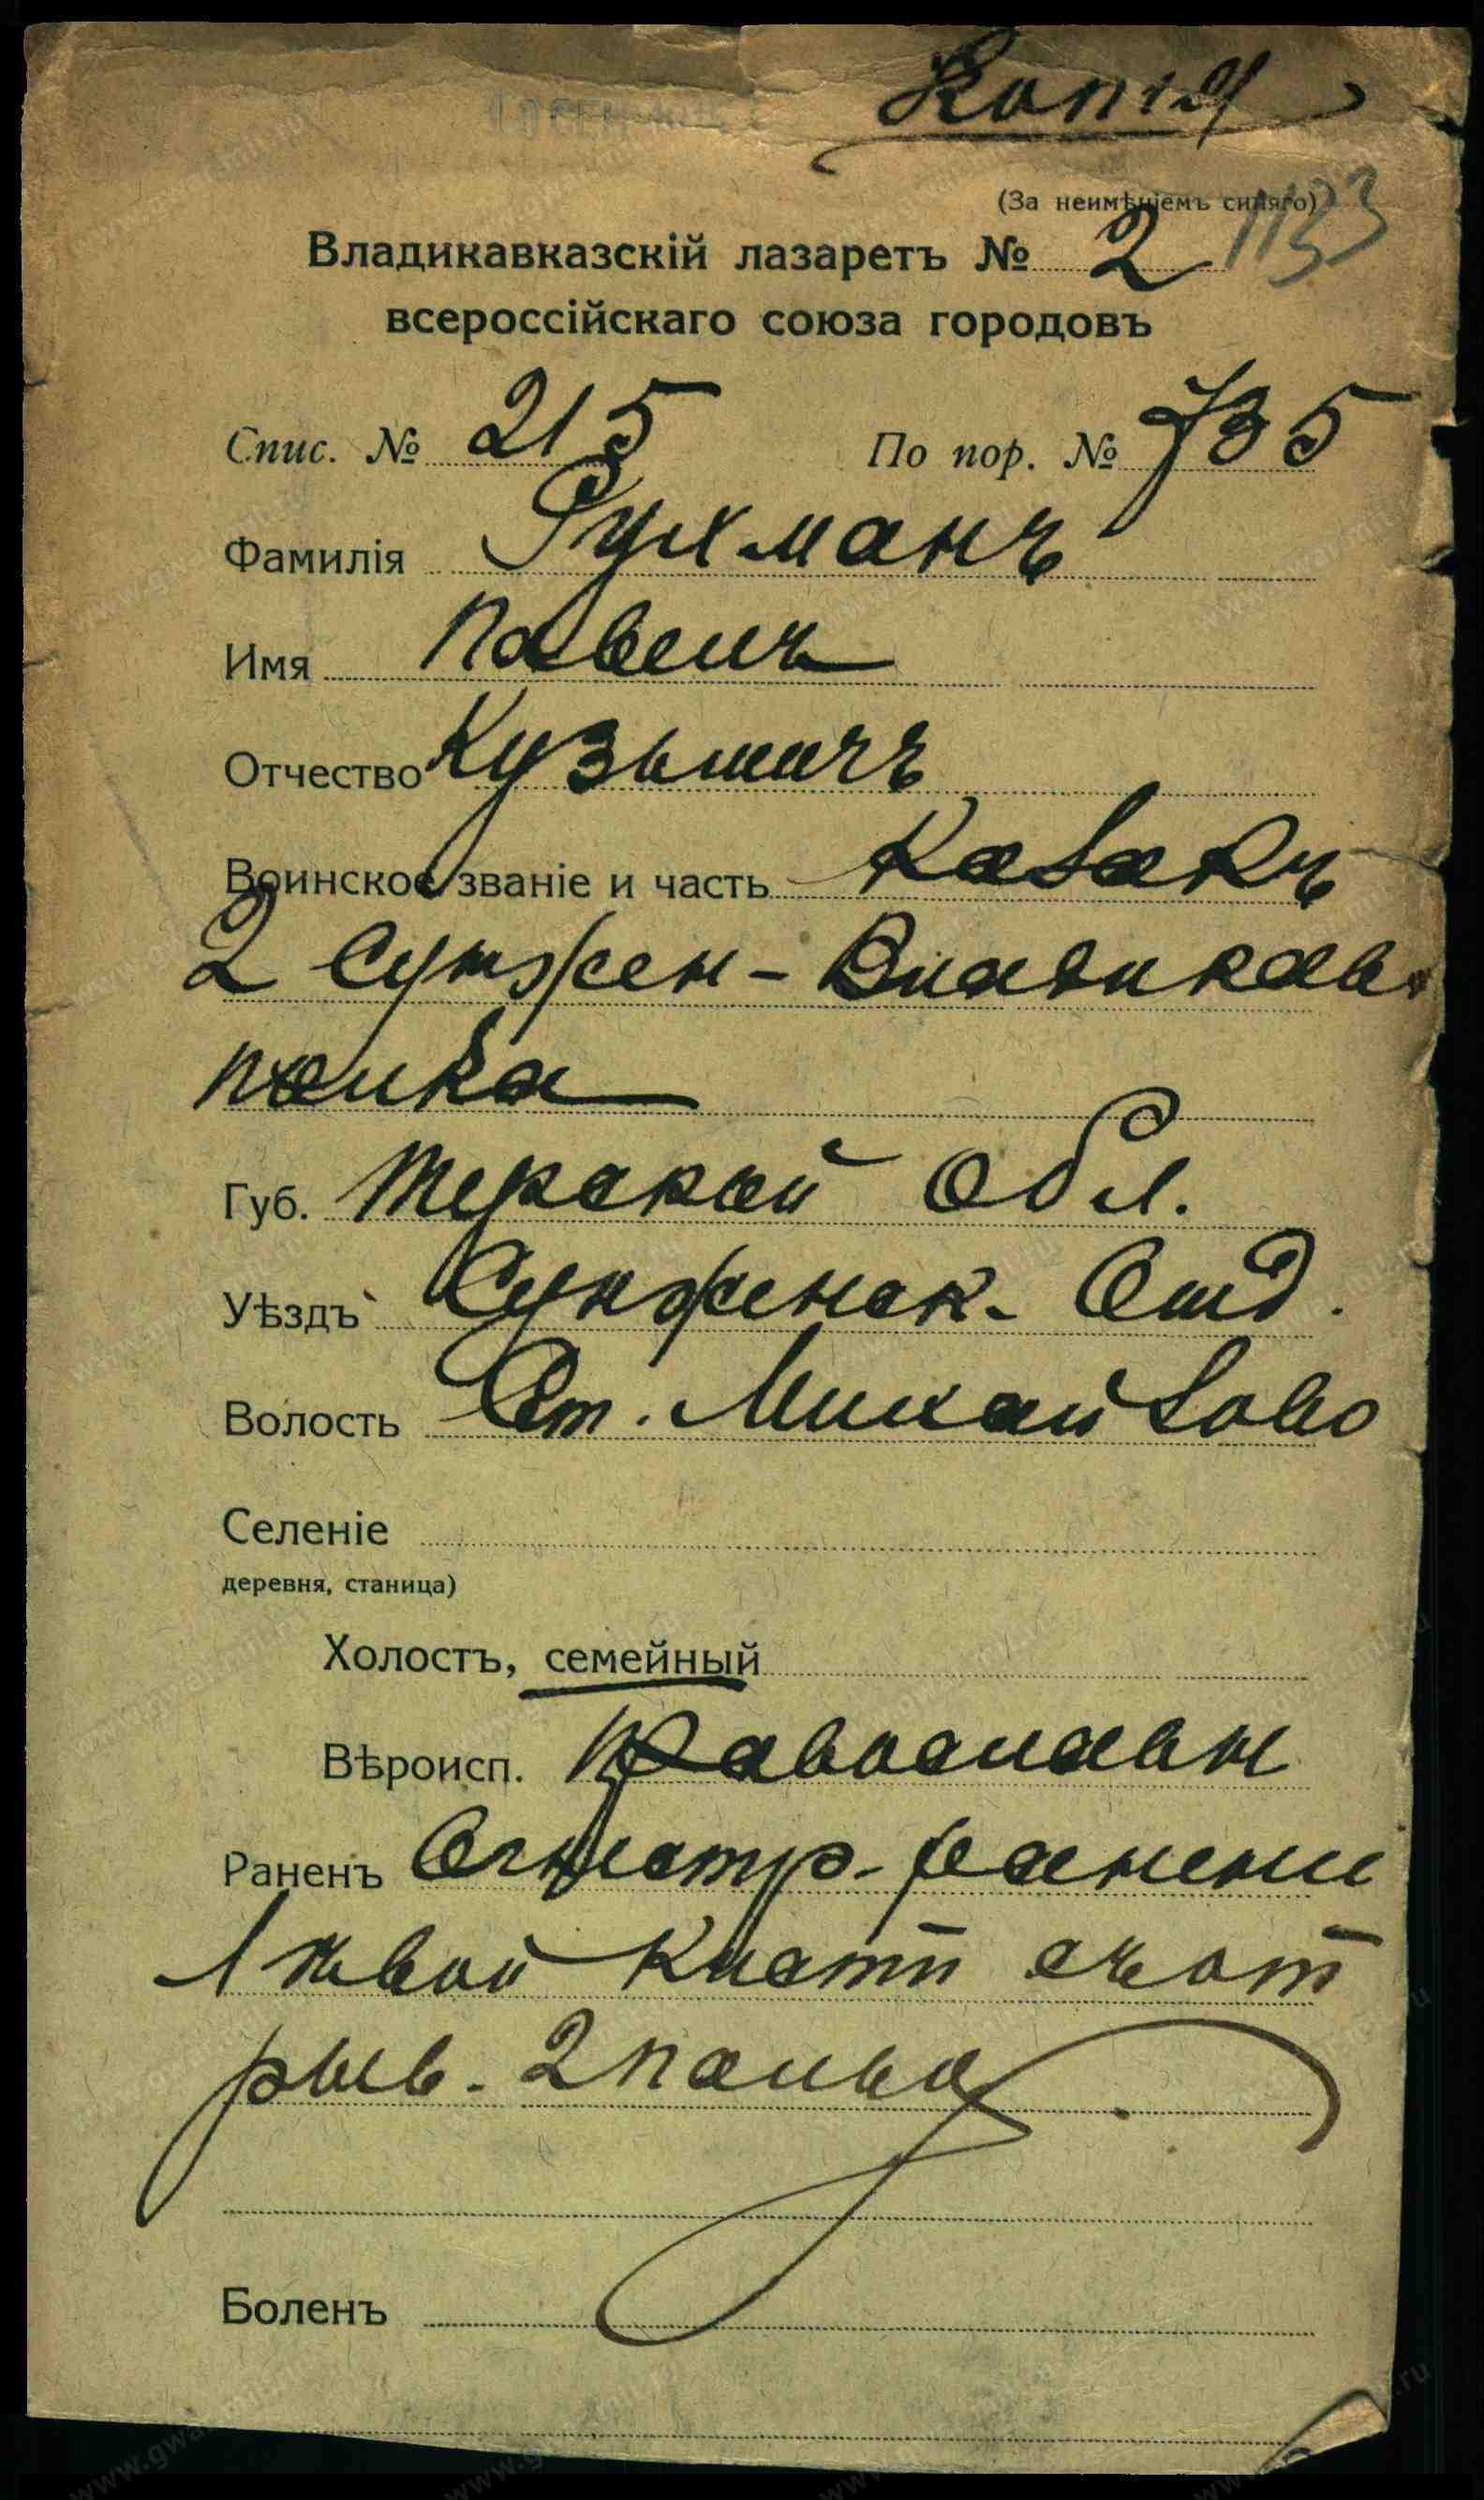 Копія
(За неимѣніемъ синяго)
1133
Владикавказскій лазаретъ № 2
всероссійскаго союза городовъ
Спис. № 215 По пор. № 735
Фамилія Рухманъ
Имя Павелъ
Отчество Кузьмичъ
Воинское званіе и часть Казакъ
2 Сунжен-Владикав.
полка
Губ. Терской Обл.
Уѣздъ Сунженск. Отд.
Волость Ст. Михайлово
Селеніе
деревня, станица)
Холостъ, семейный
Вѣроисп. Православн
Раненъ Огнестр. ранени
лѣвой кисти съ от
рыв. 2 пальца
Боленъ